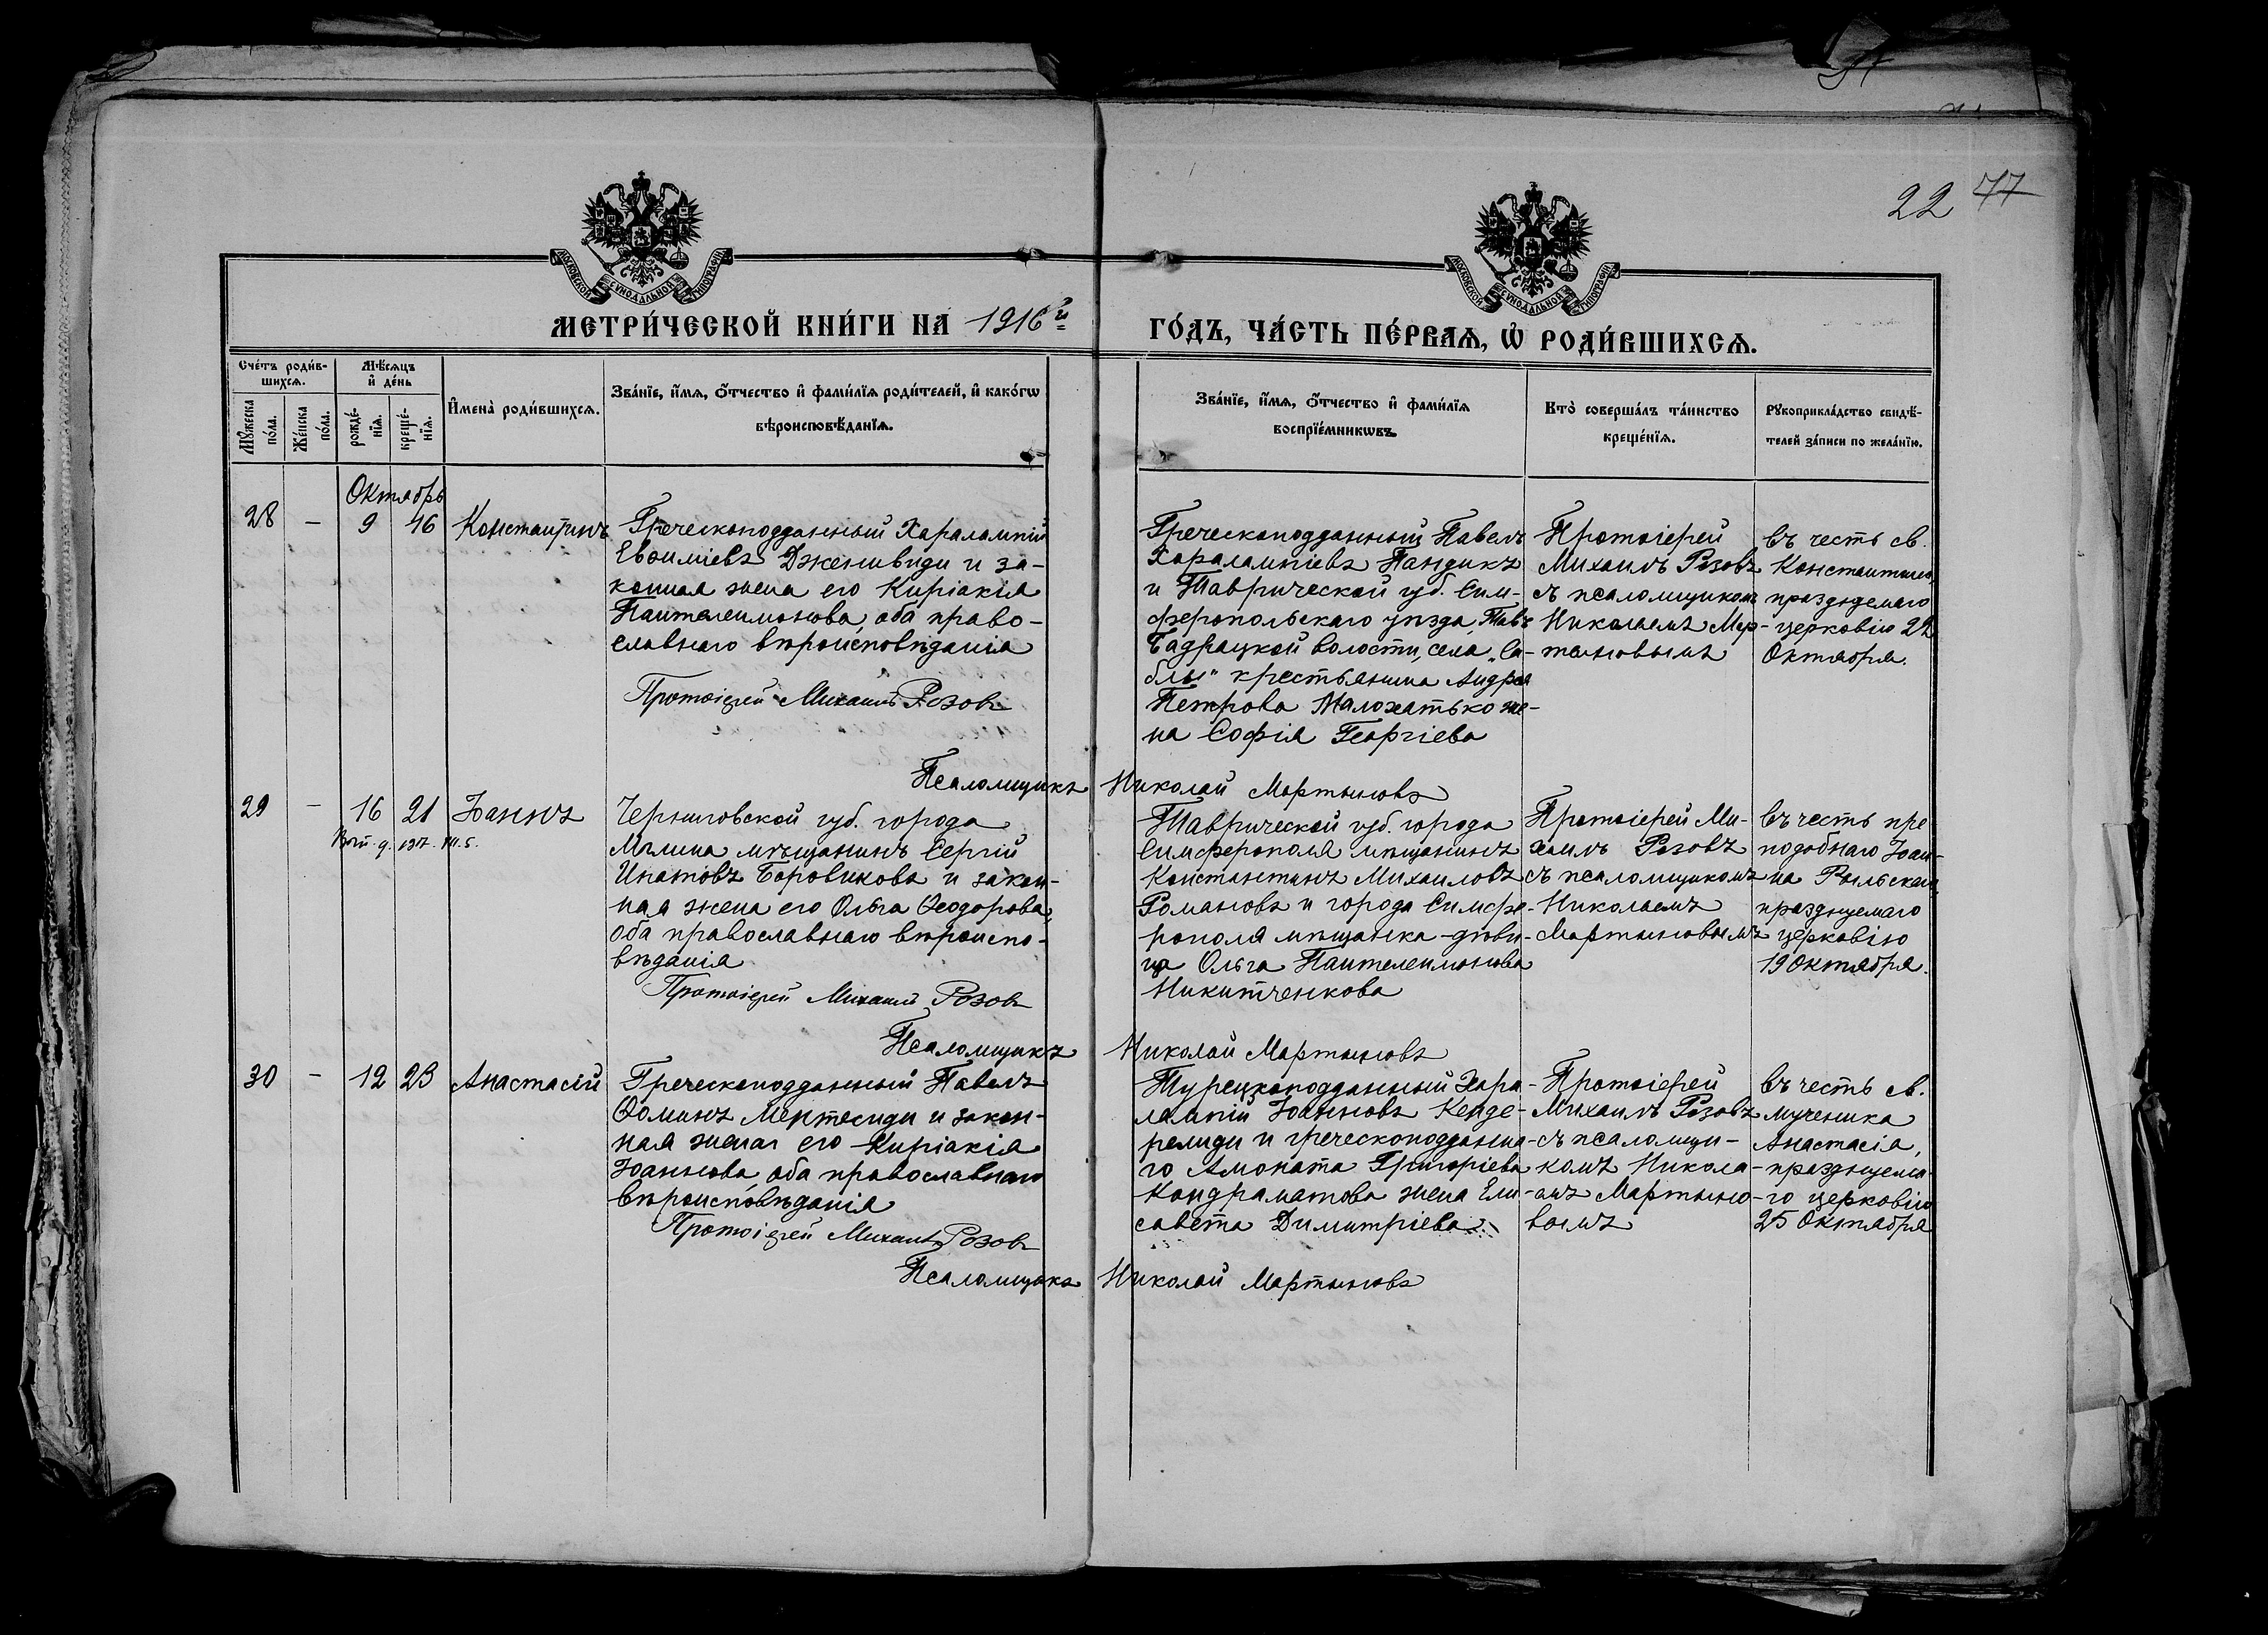 22 77
МОСКОВСКОЙ СѴНОДАЛЬНОЙ ТИПОГРАФІИ
МОСКОВСКОЙ СѴНОДАЛЬНОЙ ТИПОГРАФІИ
МЕТРИ́ЧЕСКОЙ КНИ́ГИ НА 1916й
ГО́ДЪ, ЧА́СТЬ ПЕ́РВАѦ, Ѡ҆ РОДИ́ВШИХСѦ.
Сче́тъ роди́в-
шихсѧ.
Мꙋ́жеска
по́ла.
Же́нска
по́ла.
Мѣ́сѧцъ
и҆ де́нь
рожде́-
нїѧ.
креще́-
нїѧ.
И҆мена̀ роди́вшихсѧ.
Зва́нїе, и҆́мѧ, ѻ҆́тчество и҆ фами́лїѧ роди́телей, и҆ како́гѡ
вѣроисповѣ́данїѧ.
Зва́нїе, и҆́мѧ, ѻ҆́тчество и҆ фами́лїѧ
воспрїе́мникѡвъ.
Кто̀ соверша́лъ та́инство
креще́нїѧ.
Рꙋкоприкла́дство свидѣ́-
телей за́писи по жела́нїю.
Октябрь
28 – 9 16 Константинъ
Греческоподданный Харалампій
Евѳиміевъ Дженивиди и за-
конная жена его Киріакія
Пантелеимонова, оба право-
славнаго вѣроисповѣданія
Протоіерей Михаилъ Розовъ
Греческоподданный Павелъ
Харалампіевъ Пандикъ
и Таврической губ. Сим-
феропольскаго уѣзда, Тавъ
Бадрацкой волости, села „Са-
блы" крестьянина Андрея
Петрова Малохатько же-
на Софія Георгіева
Протоіерей
Михаилъ Розовъ
съ псаломщикомъ
Николаемъ Мар-
тыновымъ
въ честь св.
Константина,
празднуемаго
церковію 22
Октября.
Псаломщикъ Николай Мартыновъ
29 – 16 21 Іоаннъ
1917. VII. 5.
Черниговской губ. города
Мглина мѣщанинъ Сергій
Ипатовъ Боровиковъ и закон-
ная жена его Ольга Ѳеодорова,
оба православнаго вѣроиспо-
вѣданія
Протоіерей Михаилъ Розовъ
Таврической губ. города
Симферополя мѣщанинъ
Константинъ Михаиловъ
Романовъ и города Симфе-
рополя мѣщанка-дѣви-
ца Ольга Пантелеимонова
Никитченкова
Протоіерей Ми-
хаилъ Розовъ
съ псаломщикомъ
Николаемъ
Мартыновымъ
въ честь пре
подобнаго Іоан-
на Рыльскаго,
празднуемаго
церковію
19 Октября.
Псаломщикъ Николай Мартыновъ
30 – 12 23 Анастасій
Греческоподданный Павелъ
Ѳоминъ Ментесиди и закон-
ная жена его Киріакія
Іоаннова, оба православнаго
вѣроисповѣданія
Протоіерей Михаилъ Розовъ
Турецкоподданный Хара-
лампій Іоанновъ Кенде-
релиди и греческоподданна-
го Амоната Григоріева
Кондраматова жена Ели-
савета Димитріева.
Протоіерей
Михаилъ Розовъ
съ псаломщи-
комъ Никола-
емъ Мартыно-
вымъ
въ честь св.
мученика
Анастасія,
празднуема-
го церковію
25 Октября
Псаломщикъ Николай Мартыновъ